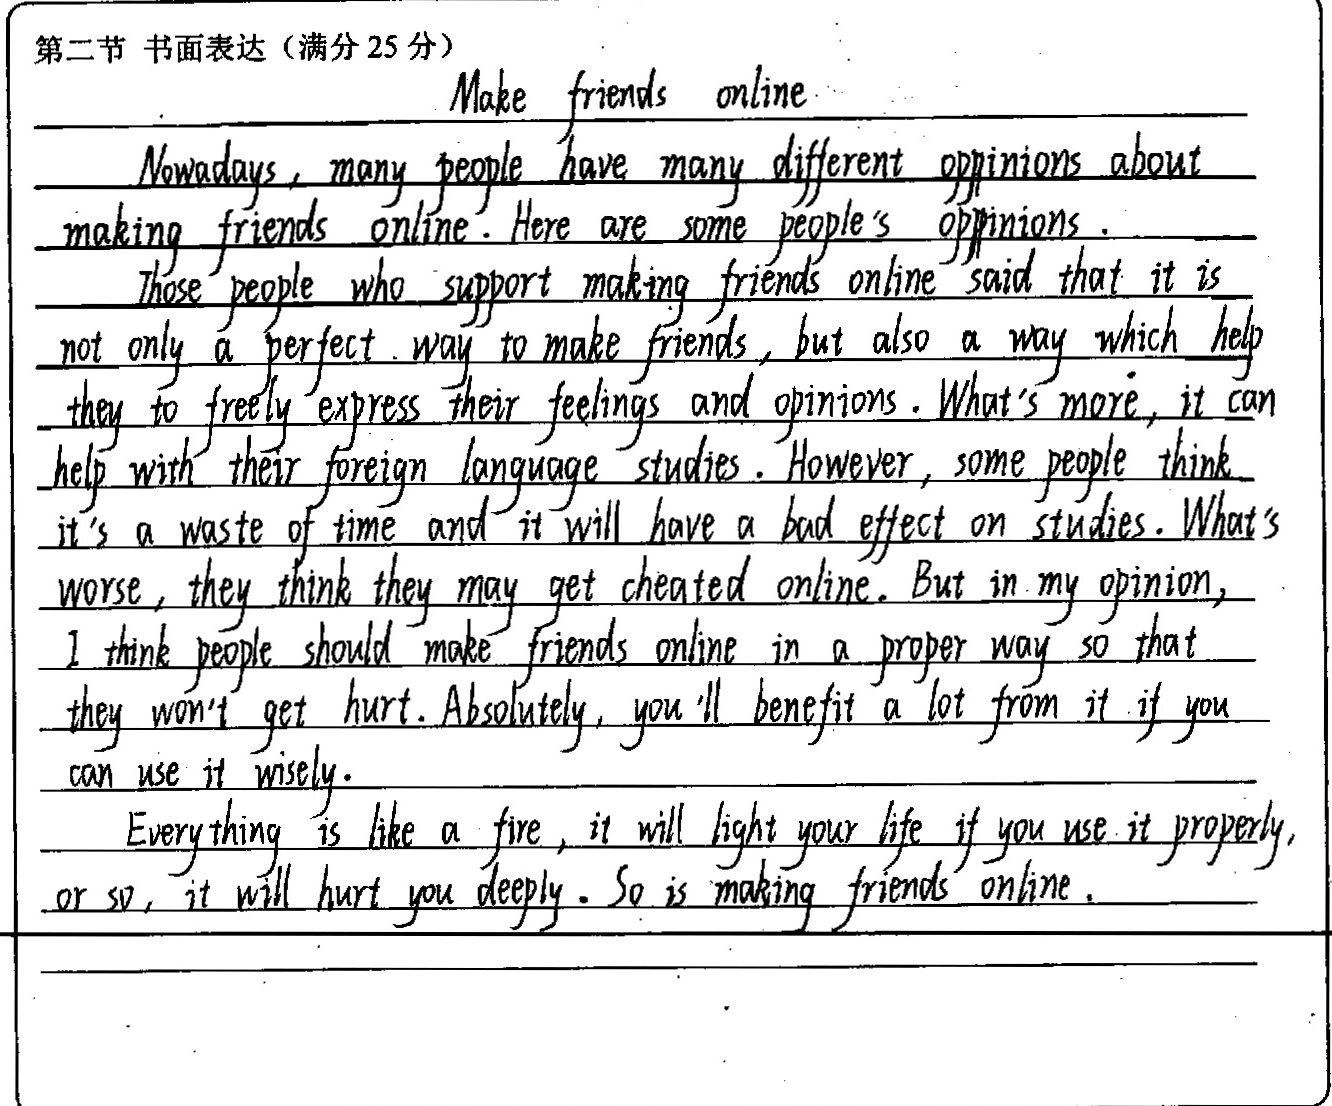 第二节 书面表达（满分 25 分）
Make friends online
Nowadays, many people have many different oppinions about
making friends online. Here are some people's oppinions.
Those people who support making friends online said that it is
not only a perfect way to make friends, but also a way which help
they to freely express their feelings and opinions. What's more, it can
help with their foreign language studies. However, some people think
it's a waste of time and it will have a bad effect on studies. What's
worse, they think they may get cheated online. But in my opinion,
I think people should make friends online in a proper way so that
they won't get hurt. Absolutely, you'll benefit a lot from it if you
can use it wisely.
Everything is like a fire, it will light your life if you use it properly,
or so, it will hurt you deeply. So is making friends online.